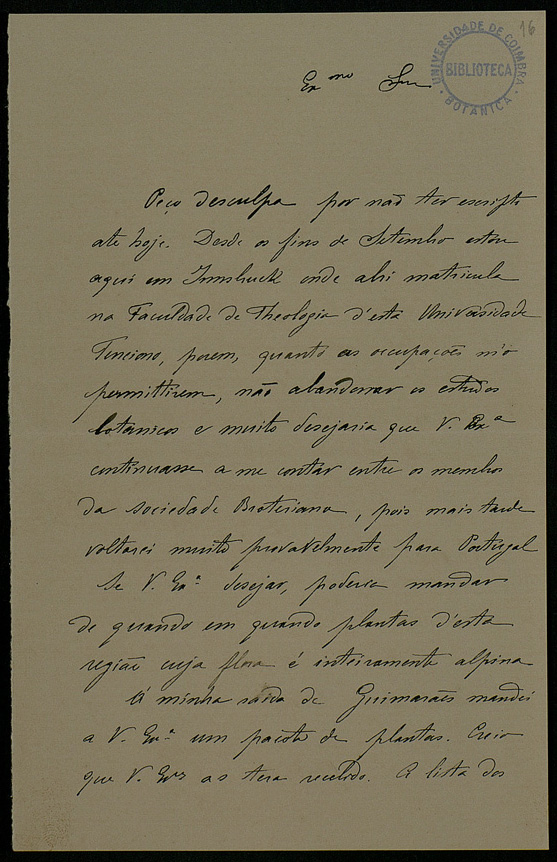 16
UNIVERSIDADE DE COIMBRA
BIBLIOTECA
BOTANICA
Ex.mo Snr
Peço desculpa por não ter escripto
até hoje. Desde os fins de Setembro estou
aqui em Innsbuck onde abri matricula
na Faculdade de Theologia d'esta Universidade
Tenciono, porem, quanto as occupações m'o
permittirem, não abandonar os estudos
botanicos e muito desejaria que V. Exa
continuasse a me contar entre os membros
da Sociedade Broteriana, pois mais tarde
voltarei muito provavelmente para Portugal
Se V. Exa desejar, poderia mandar
de quando em quando plantas d'esta
região cuja flora é inteiramente alpina
Á minha saida de Guimarães mandei
a V. Exa um pacote de plantas. Creio
que V. Exa as tera recebido. A lista dos